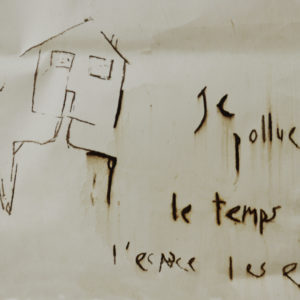 Je
pollue
le temps
l'espace les